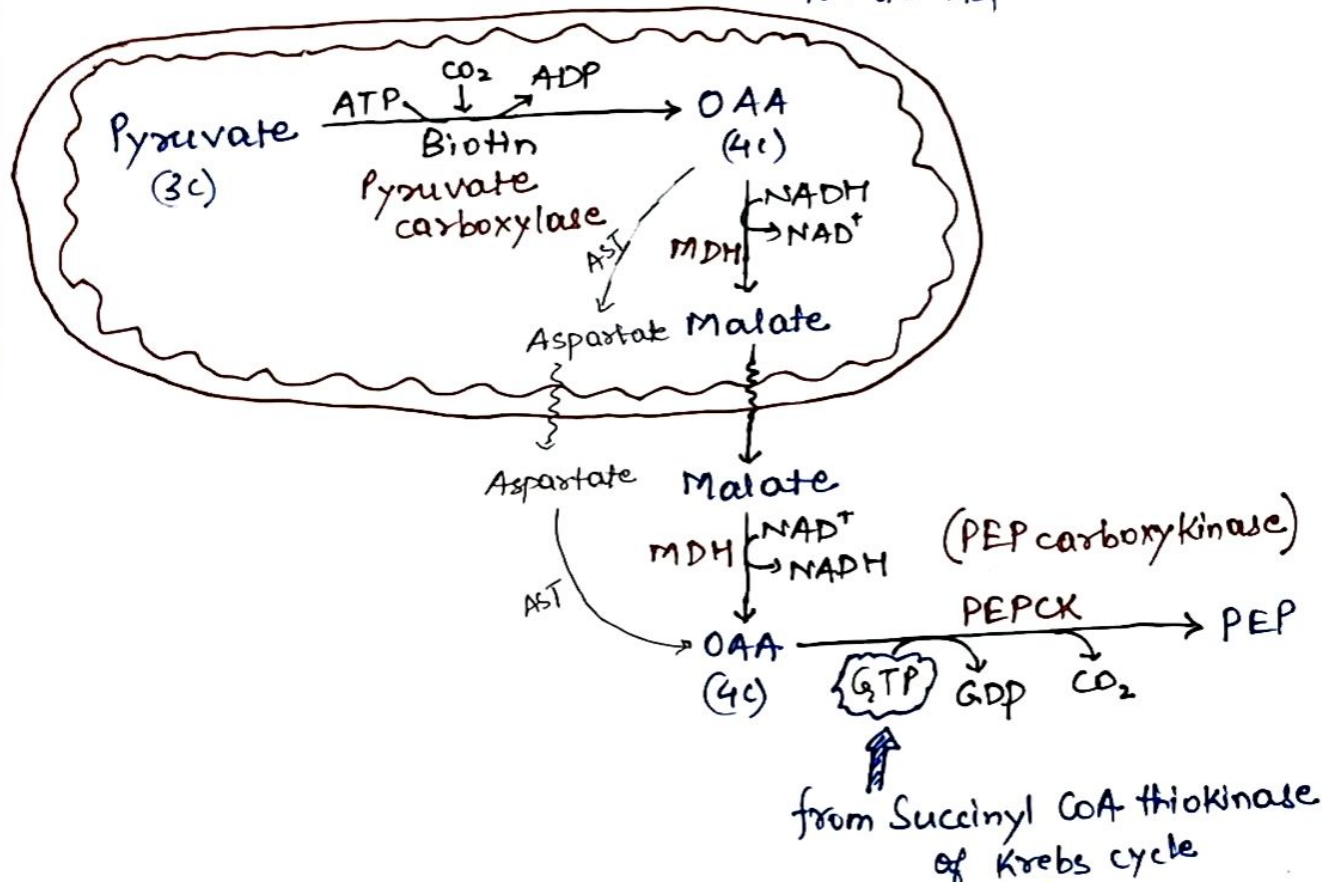 CO₂
ATP
ADP
Pyruvate
(3C)
Biotin
Pyruvate
carboxylase
OAA
(4C)
NADH
NAD⁺
MDH
AST
Aspartate
Malate
Aspartate
Malate
NAD⁺
NADH
MDH
AST
(PEP carboxykinase)
OAA
(4C)
PEPCK
PEP
GTP
GDP
CO₂
from Succinyl CoA thiokinase
of Krebs cycle